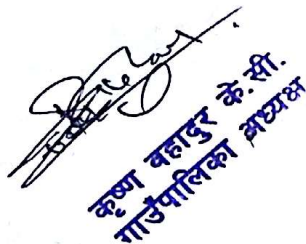 कृष्ण बहादुर के.सी.
गाउँपालिका अध्यक्ष